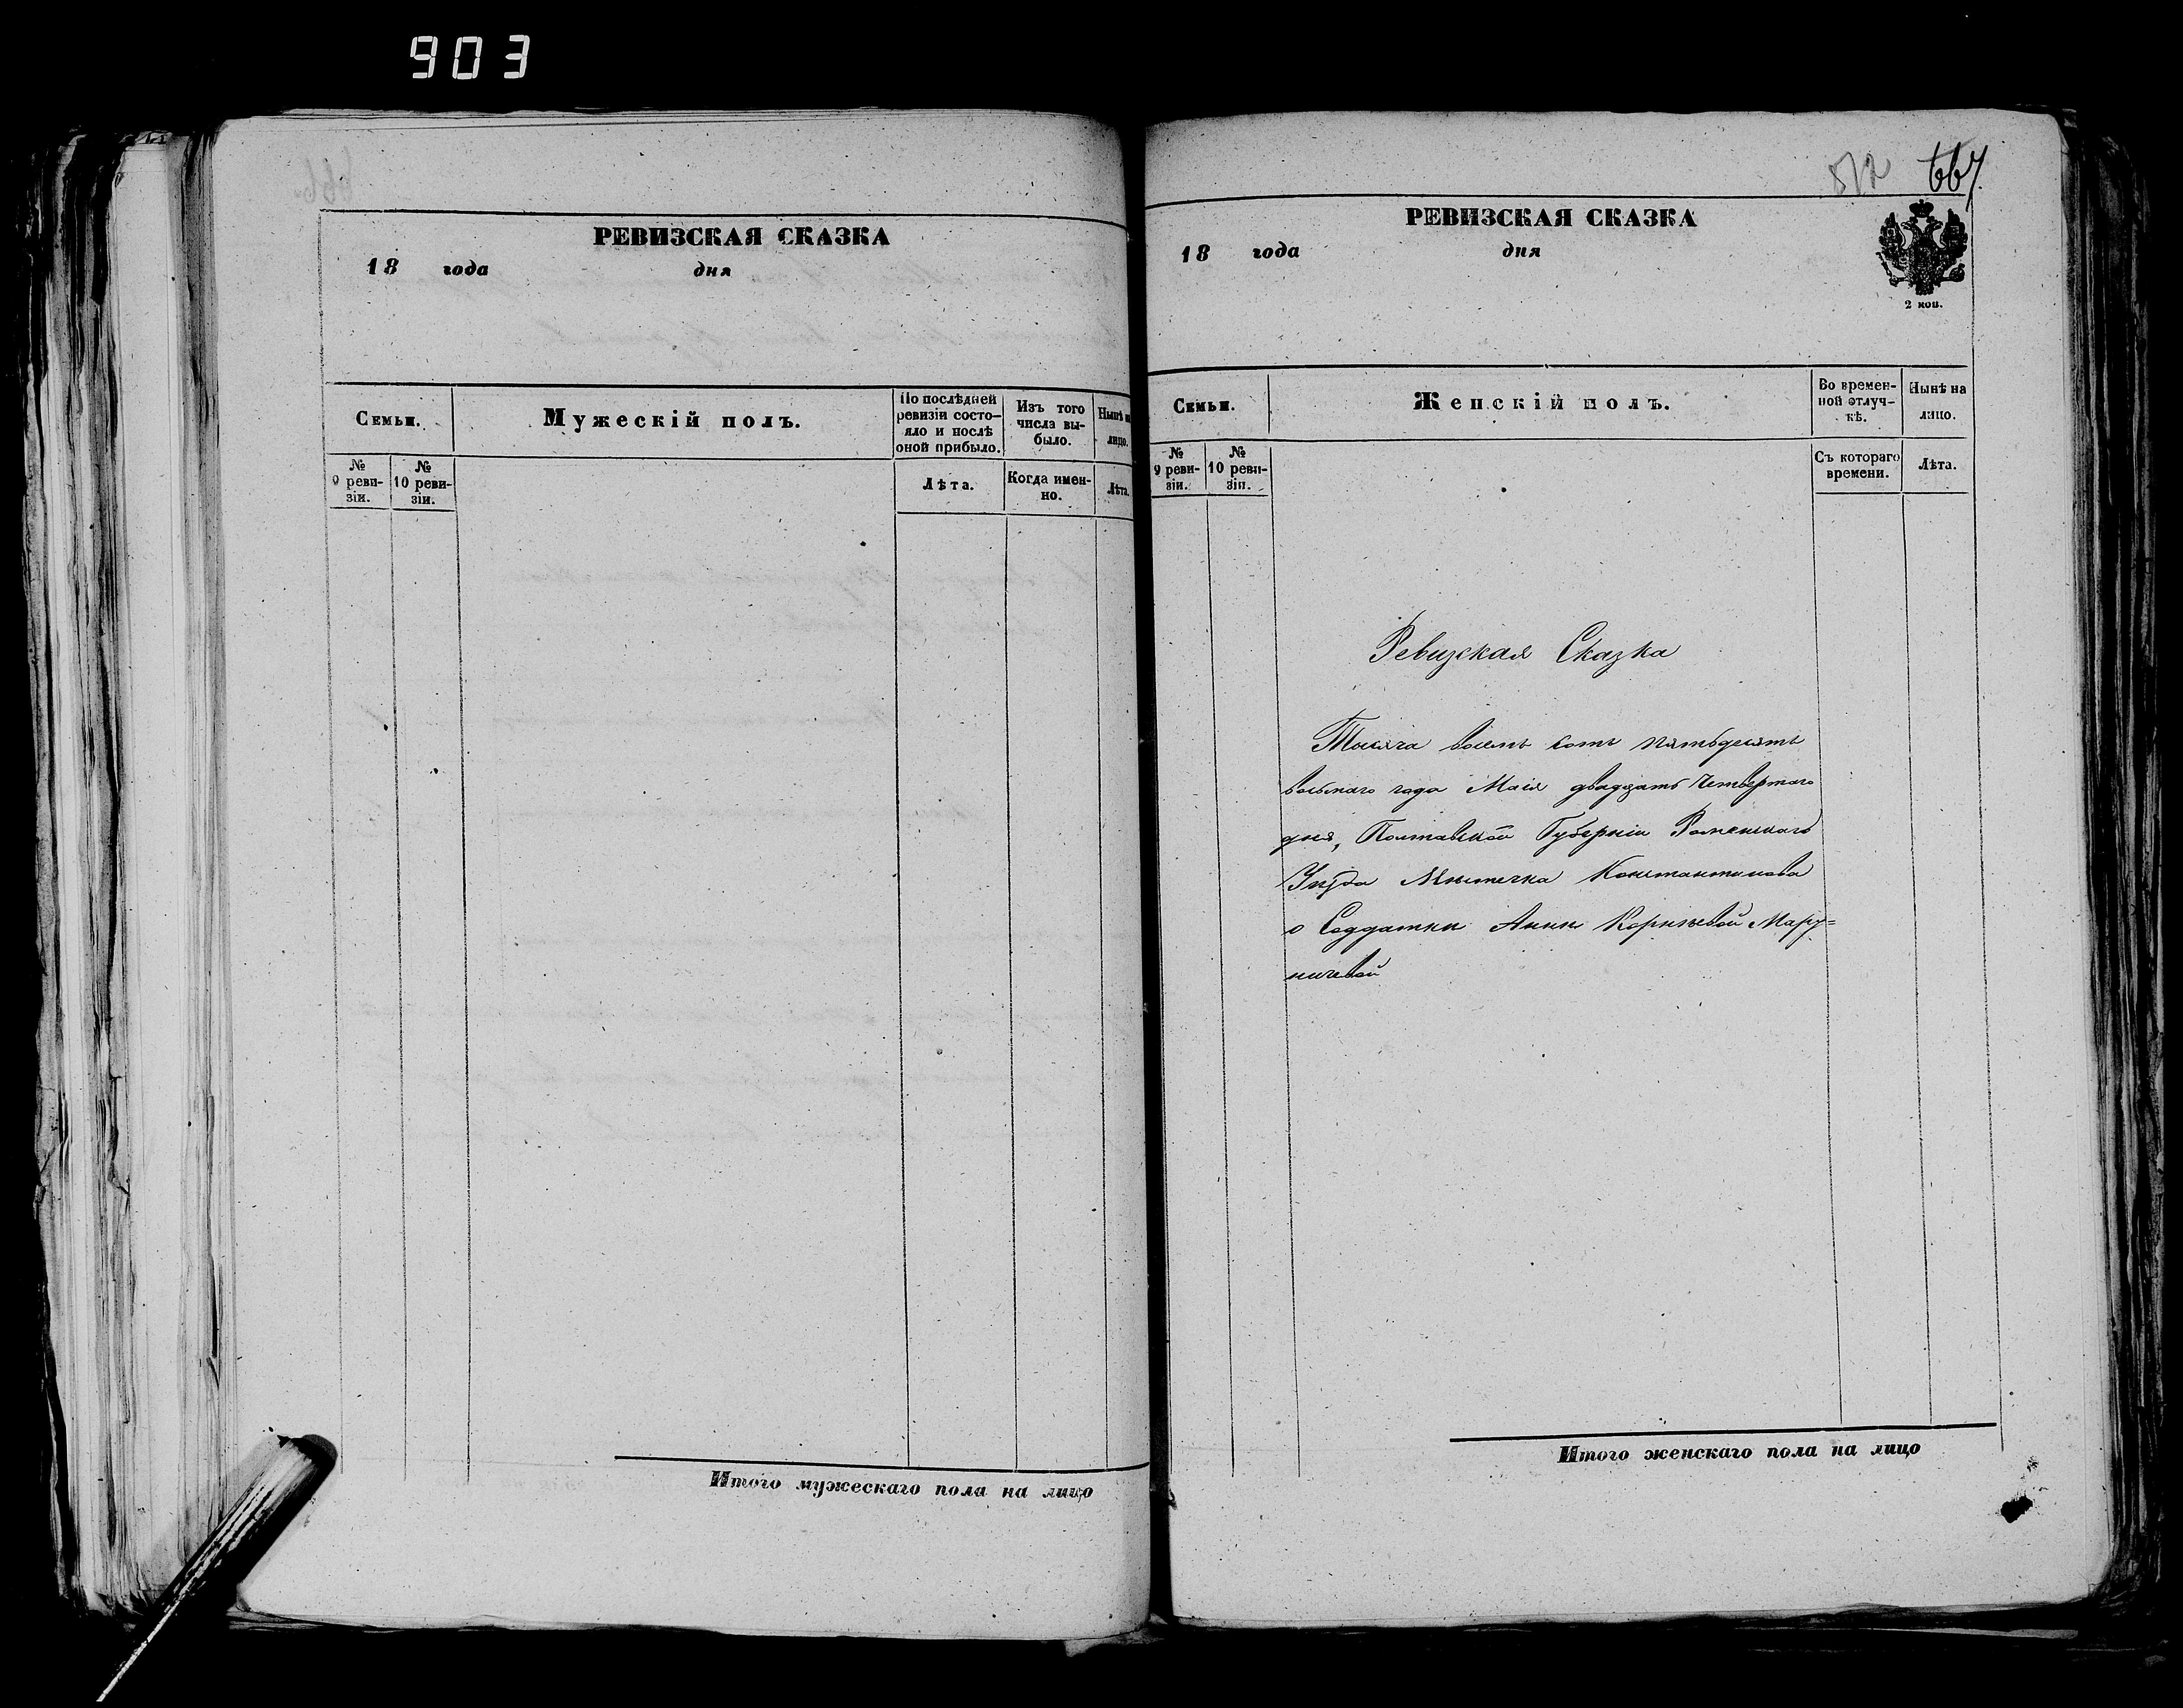 903
РЕВИЗСКАЯ СКАЗКА
18 года дня
Семьи.
Мужескій полъ.
По послѣдней ревизіи состояло и послѣ оной прибыло.
Изъ того числа выбыло.
Нынѣ на лицо.
№ 9 ревизіи.
№ 10 ревизіи.
Лѣта.
Когда именно.
Лѣта.
Итого мужескаго пола на лицо
667.
РЕВИЗСКАЯ СКАЗКА
18 года дня
2 коп.
Семьи.
Женскій полъ.
Во временной отлучкѣ.
Нынѣ на лицо.
№ 9 ревизіи.
№ 10 ревизіи.
Съ котораго времени.
Лѣта.
Ревизская Сказка
Тысяча восемь сотъ пятьдесятъ
восьмаго года Маія двадцать четвертаго
дня, Полтавской Губерніи Роменскаго
Уѣзда Мѣстечка Константинова
о Солдатки Анны Корнѣевой Мару=
ничевой
Итого женскаго пола на лицо